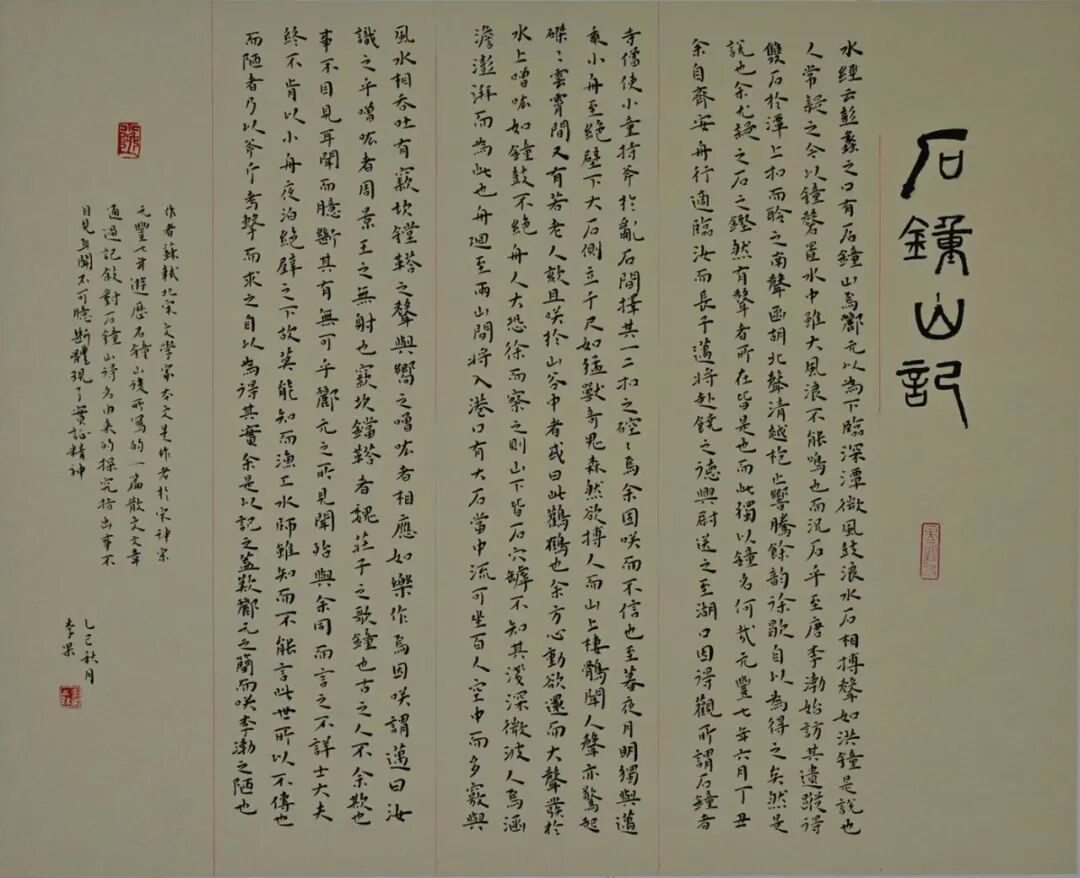 石鐘山記
水經云彭蠡之口有石鐘山焉酈元以為下臨深潭微風鼓浪水石相搏聲如洪鐘是說也
人常疑之今以鐘磬置水中雖大風浪不能鳴也而況石乎至唐李渤始訪其遺蹤得
雙石於潭上扣而聆之南聲函胡北聲清越枹止響騰餘韵徐歇自以為得之矣然是
說也余尤疑之石之鏗然有聲者所在皆是也而此獨以鐘名何哉元豐七年六月丁丑
余自齊安舟行適臨汝而長子邁將赴饒之德興尉送之至湖口因得觀所謂石鐘者
寺僧使小童持斧於亂石間擇其一二扣之硿硿焉余固咲而不信也至暮夜月明獨與邁
乘小舟至絕壁下大石側立千尺如猛獸奇鬼森然欲搏人而山上棲鶻聞人聲亦驚起
磔磔雲霄間又有若老人欬且咲於山谷中者或曰此鸛鶴也余方心動欲還而大聲發於
水上噌吰如鐘鼓不絕舟人大恐徐而察之則山下皆石穴罅不知其淺深微波入焉涵
澹澎湃而為此也舟迴至兩山間將入港口有大石當中流可坐百人空中而多竅與
風水相吞吐有窾坎鏜鞳之聲與嚮之噌吰者相應如樂作焉因咲謂邁曰汝
識之乎噌吰者周景王之無射也窾坎鏜鞳者魏莊子之歌鐘也古之人不余欺也
事不目見耳聞而臆斷其有無可乎酈元之所見聞殆與余同而言之不詳士大夫
終不肯以小舟夜泊絕壁之下故莫能知而漁工水師雖知而不能言此世所以不傳也
而陋者乃以斧斤考擊而求之自以為得其實余是以記之蓋歎酈元之簡而咲李渤之陋也
作者蘇軾北宋文學家本文是作者於宋神宗
元豐七年遊歷石鐘山後所寫的一篇散文文章
通過記敘對石鐘山得名由來的探究指出事不
目見耳聞不可臆斷體現了實証精神
乙巳秋月
李果